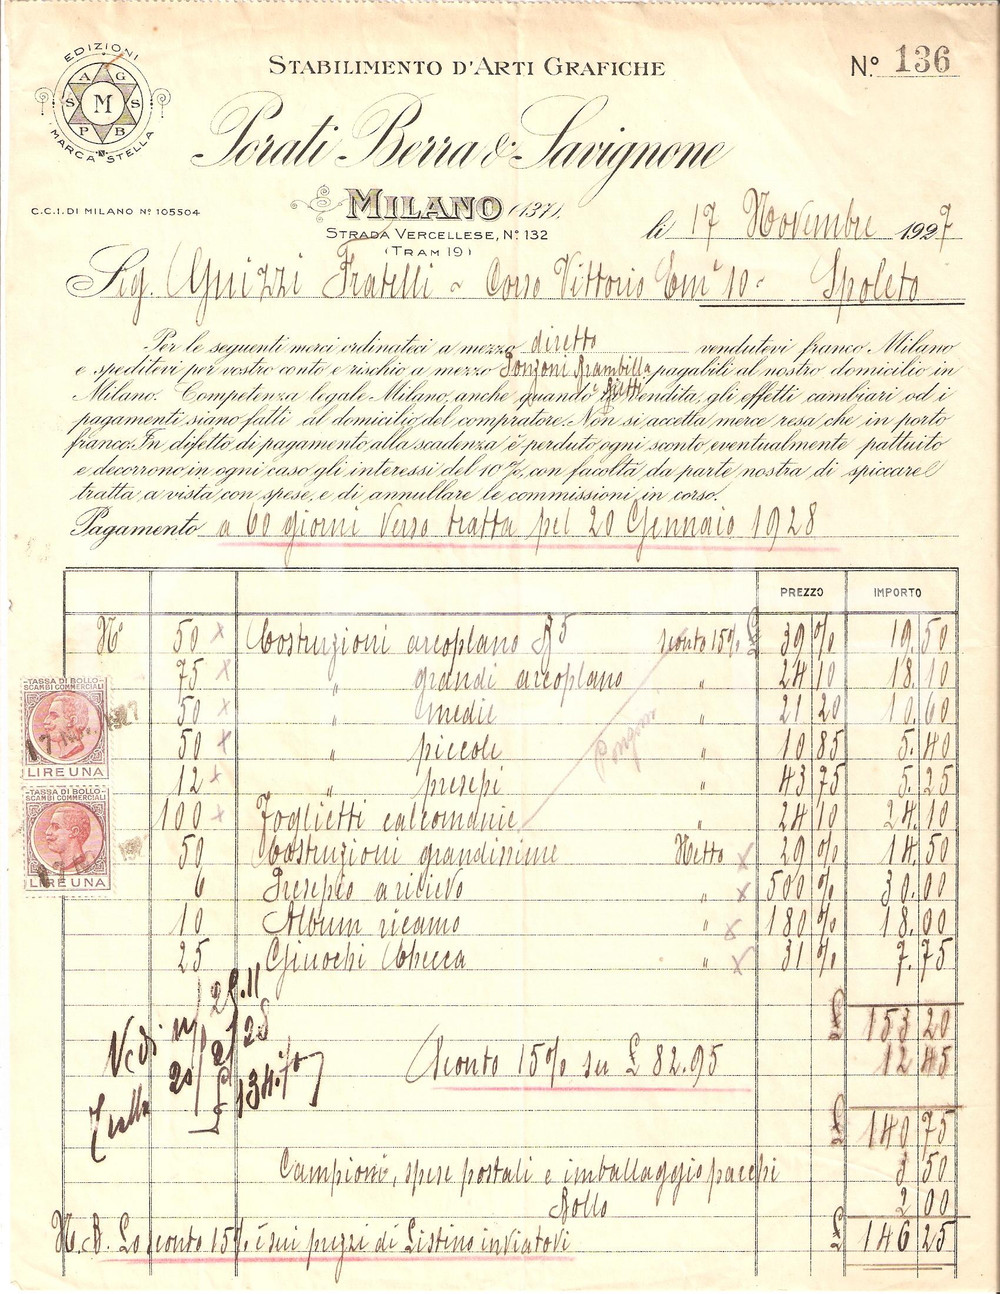 EDIZIONI
A G
S M S
P B
N
MARCA STELLA
STABILIMENTO D'ARTI GRAFICHE
N.º 136
Porati Berra & Savignone
MILANO (137).
C.C.I. DI MILANO Nº 105504
STRADA VERCELLESE, N.º 132
(TRAM 19)
li 17 Novembre 1927
Sig. Guizzi Fratelli - Corso Vittorio Emˡ 10 - Spoleto
Per le seguenti merci ordinateci a mezzo diretto vendutevi franco Milano
e speditevi per vostro conto e rischio a mezzo Gonzoni Brambilla pagabili al nostro domicilio in
Milano. Competenza legale Milano, anche quando i vendita, gli effetti cambiari od i
pagamenti siano fatti al domicilio del compratore. Non si accetta merce resa che in porto
franco. In difetto di pagamento alla scadenza è perduto ogni sconto eventualmente pattuito
e decorrono in ogni caso gli interessi del 10%, con facoltà da parte nostra di spiccare
tratta a vista con spese, e di annullare le commissioni in corso.
Pagamento a 60 giorni verso tratta pel 20 Gennaio 1928
PREZZO IMPORTO
Nº 50 x Costruzioni areoplano 5 sconto 15% £ 39 % 19.50
75 x " grandi areoplano " 24 10 18.10
50 x " medie " 21 20 10.60
50 x " piccole " 10 85 5.40
12 x " presepi " 43 75 5.25
100 x Foglietti calcomanie " 24 10 24.10
50 Costruzioni grandissime Netto x 29 % 14.50
6 Presepio a rilievo " x 500 % 30.00
10 Album ricamo " x 180 % 18.00
25 Giuochi Checca " x 31 % 7.75
TASSA DI BOLLO
SCAMBI COMMERCIALI
LIRE UNA
TASSA DI BOLLO
SCAMBI COMMERCIALI
LIRE UNA
£ 153 20
Sconto 15% su £ 82.95 12 45
£ 140 75
Campioni, spese postali e imballaggio pacchi 3 50
Bollo 2 00
N.B. Lo sconto 15% è sui prezzi di Listino inviatovi £ 146 25